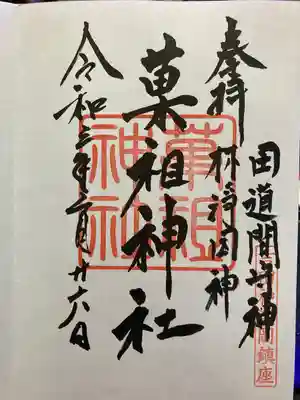 奉拝
田道間守神
林浄因神
菓祖神社
令和三年三月廿六日
菓祖
神社
岡鎮座